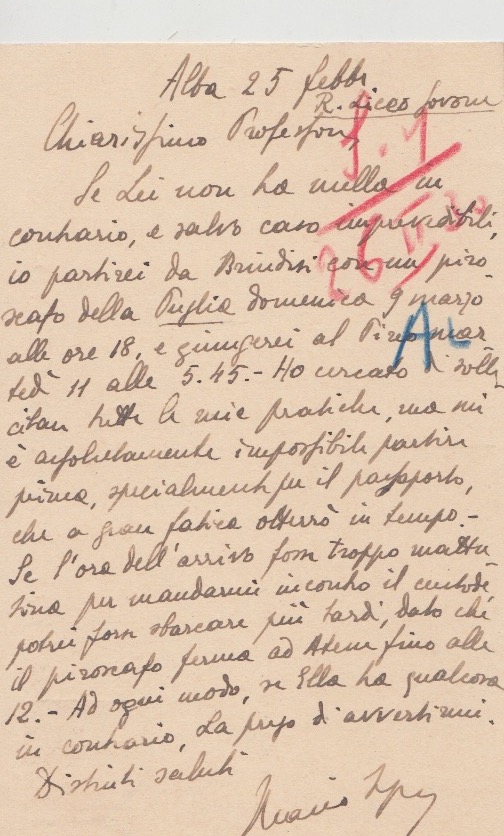 Alba 25 febbr
R. Liceo Govone
Chiarissimo Professore,
Se Lei non ha nulla in
contrario, e salvo caso imprevedibili,
io partirei da Brindisi con un piro
scafo della Puglia domenica 9 marzo
alle ore 18, e giungerei al Pireo mar
tedì 11 alle 5.45.- Ho cercato di solle
citare tutte le mie pratiche, ma mi
è assolutamente impossibile partire
prima, specialmente per il passaporto,
che a gran fatica otterrò in tempo.-
Se l'ora dell'arrivo fosse troppo mattu
tina per mandarmi incontro il custode,
potrei forse sbarcare più tardi, dato che
il piroscafo ferma ad Atene fino alle
12.- Ad ogni modo, se Ella ha qualcosa
in contrario, La prego d'avvertirmi.
Distinti saluti
Mario
26 II 30
AL